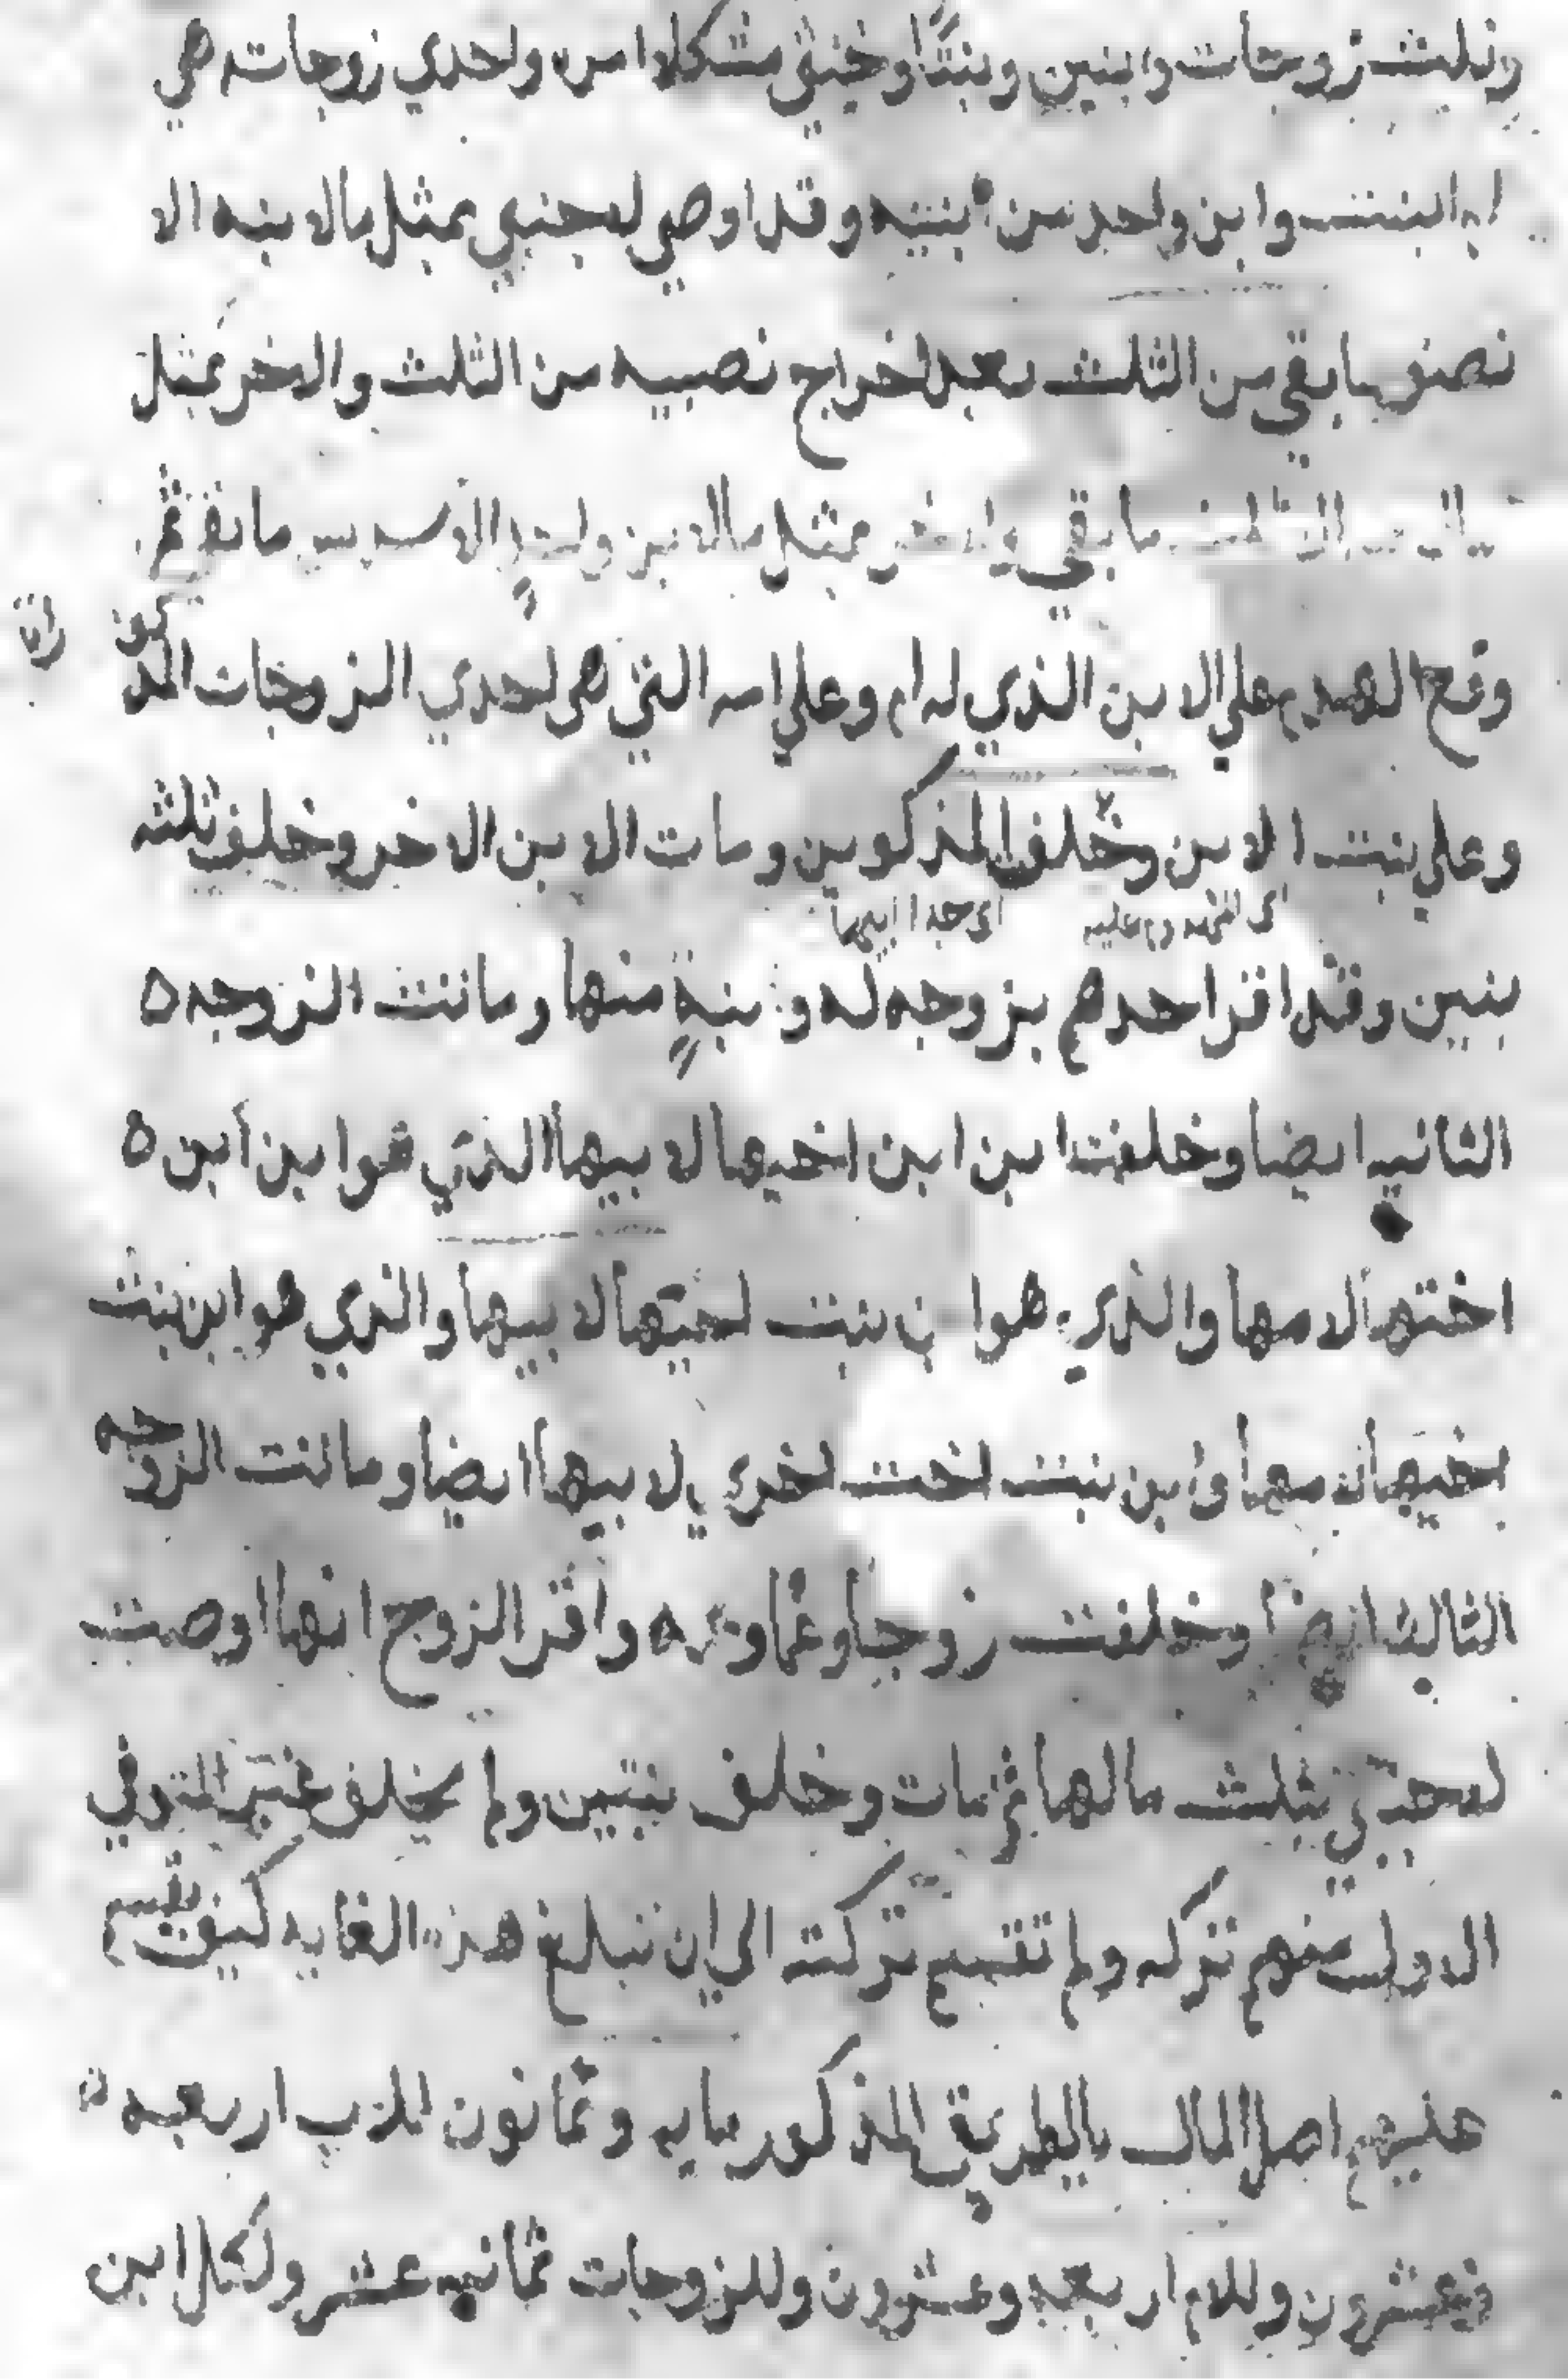 وثلث زوجات وابنين وبنتًا وخنثى مشكلا امره واحدي زوجاته هي
ام البنت وابن واحد من ابنيه وقد اوصي لاجنبي بمثل مالابنه الا
نصف ما بقي من الثلث بعد اخراج نصيبه من الثلث والاخر بمثل
ما بقي ولاخر بمثل مالابن واحدٍ الا سدس ما بقي ثم
وقع الهدم علي الابن الذي له ام وعلي امه التي هي احدي الزوجات المذكورات
وعلي بنت الابن وخلف المذكورين ومات الابن الاخر وخلف ثلثه
اي المهدوم عليه اي جدا ابيها
بنين وقد اقر احدهم بزوجه له وابنةٍ منها وماتت الزوجه ه
الثانيه ايضا وخلفت ابن ابن اخيها لابيها الذي هو ابن ابن ه
اختها لامها والذي هوا بن بنت اختها لابيها والذي هو ابن بنت
اخيها لامها وابن بنت اخت اخري لابيها ايضا وماتت الزوجه
الثالثه ايضا وخلفت زوجا وعما وغيره واقر الزوج انها اوصت
لاجنبي بثلث مالها ثم مات وخلف بنتين ولم يخلف غير المتوفي
الاول منهم تركه ولم تقسم تركته الي ان تبلغ هذه الغايه كيف تقسم
عليهم اصل المال بالطريق المذكور مايه وثمانون للاب اربعه
وعشرون وللام اربعه وعشرون وللزوجات ثمانيه عشر ولكل ابن